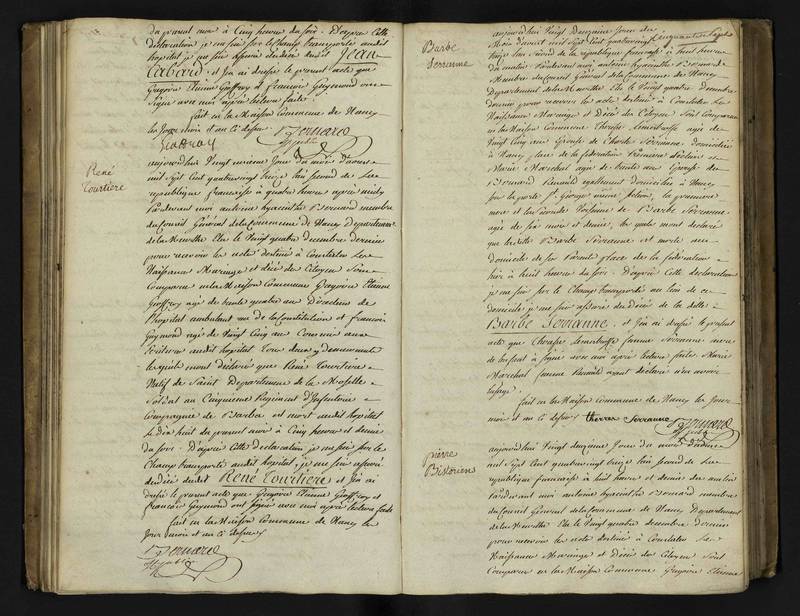 du present mois à Cinq heures du soir. D'apres Cette
declaration je me suis sur le champ transporté audit
hopital je me suis assuré du décès dudit Jean
Cabard. et j'en ai dressé le present acte que
Gregoire Etienne Geoffroy et francois Guymond ont
signé avec moi après lecture faite.
fait en la Maison Commune de Nancy
les Jour mois et an ci dessus. Bernard
off public
René
Tourtiere
aujourd'hui Vingt unieme Jour du mois d'aoust
mil Sept Cent quatrevingt treize l'an second de La
republique francaise à quatre heures après midy
Pardevant moi antoine hyacinthe Bernard membre
du Conseil Général de la Commune de Nancy Departement
de la Meurthe Elu le Vingt quatre decembre dernier
pour recevoir les acte destiné à Constater Les
Naissance Mariage et décès des Citoyen Sont
Comparus en la Maison Commune Gregoire Etienne
Geoffroy agé de trente quatre ans Directeur de
l'hopital ambulant rue de la Constitution et francois
Guymond agé de Vingt Cinq ans Commis aux
Ecritures audit hopital tous deux y demeurants
lesquels m'ont déclaré que René Tourtiere
Natif de Departement de la Moselle
Soldat au Cinquieme Regiment d'Infanterie
Compagnie de Barba est mort audit hopital
le dix huit du present mois à Cinq heures et demie
du soir. D'après Cette Declaration je me suis sur le
Champ transporté audit hopital, je me suis assuré
du décès dudit René Tourtiere et j'en ai
dressé le present acte que Gregoire Etienne Geoffroy et
francois Guymond ont signé avec moi après lecture faite
fait en la Maison Commune de Nancy les
Jour mois et an ci dessus.
Bernard
off public
Barbe
Serranne
aujourd'hui Vingt Deuxieme Jour du
Mois d'aoust mil Sept Cent quatrevingt
treize l'an second de la republique francaise à huit heures
du matin Pardevant moi antoine hyacinthe Bernard
Membre du Conseil Général de la Commune de Nancy
Departement de la Meurthe Elu le Vingt quatre Decembre
dernier pour recevoir les acte destiné à Constater Les
Naissance Mariage et Décès des Citoyen Sont Comparus
en la Maison Commune Therese agée de
Vingt Cinq ans Epouse de Charle Serranne domicilié
à Nancy place de la fédération Premiere Section et
Marie Marechal agée de trente ans Epouse de
Bernard également domicilié à Nancy
sur la porte St. George même Section, la premiere
mere et la seconde Voisine de Barbe Serranne
agée de six mois et demie, les quels m'ont déclaré
que ladite Barbe Serranne est morte au
domicile de ses Parents place de la fédération
hier à huit heures du soir. D'après Cette declaration
je me suis sur le Champ transporté au lieu de ce
domicile je me suis assuré du Décès de la dite
Barbe Serranne. et j'en ai dressé le present
acte que Therese femme Serranne mere
de l'enfant à signé avec moi après lecture faite Marie
Marechal femme ayant déclaré n'en avoir
l'usage.
fait en la Maison Commune de Nancy les Jour
mois et an ci dessus. therese serranne Bernard
off public
pierre
Bistorien
aujourd'hui Vingt deuxieme Jour du mois d'aoust
mil Sept Cent quatrevingt treize l'an second de La
republique francaise à huit heures et demie du matin
Pardevant moi antoine hyacinthe Bernard membre
du Conseil Général de la Commune de Nancy Departement
de la Meurthe Elu le Vingt quatre decembre dernier
pour recevoir les acte destiné à Constater Les
Naissance Mariage et Décès des Citoyen Sont
Comparus en la Maison Commune Gregoire Etienne